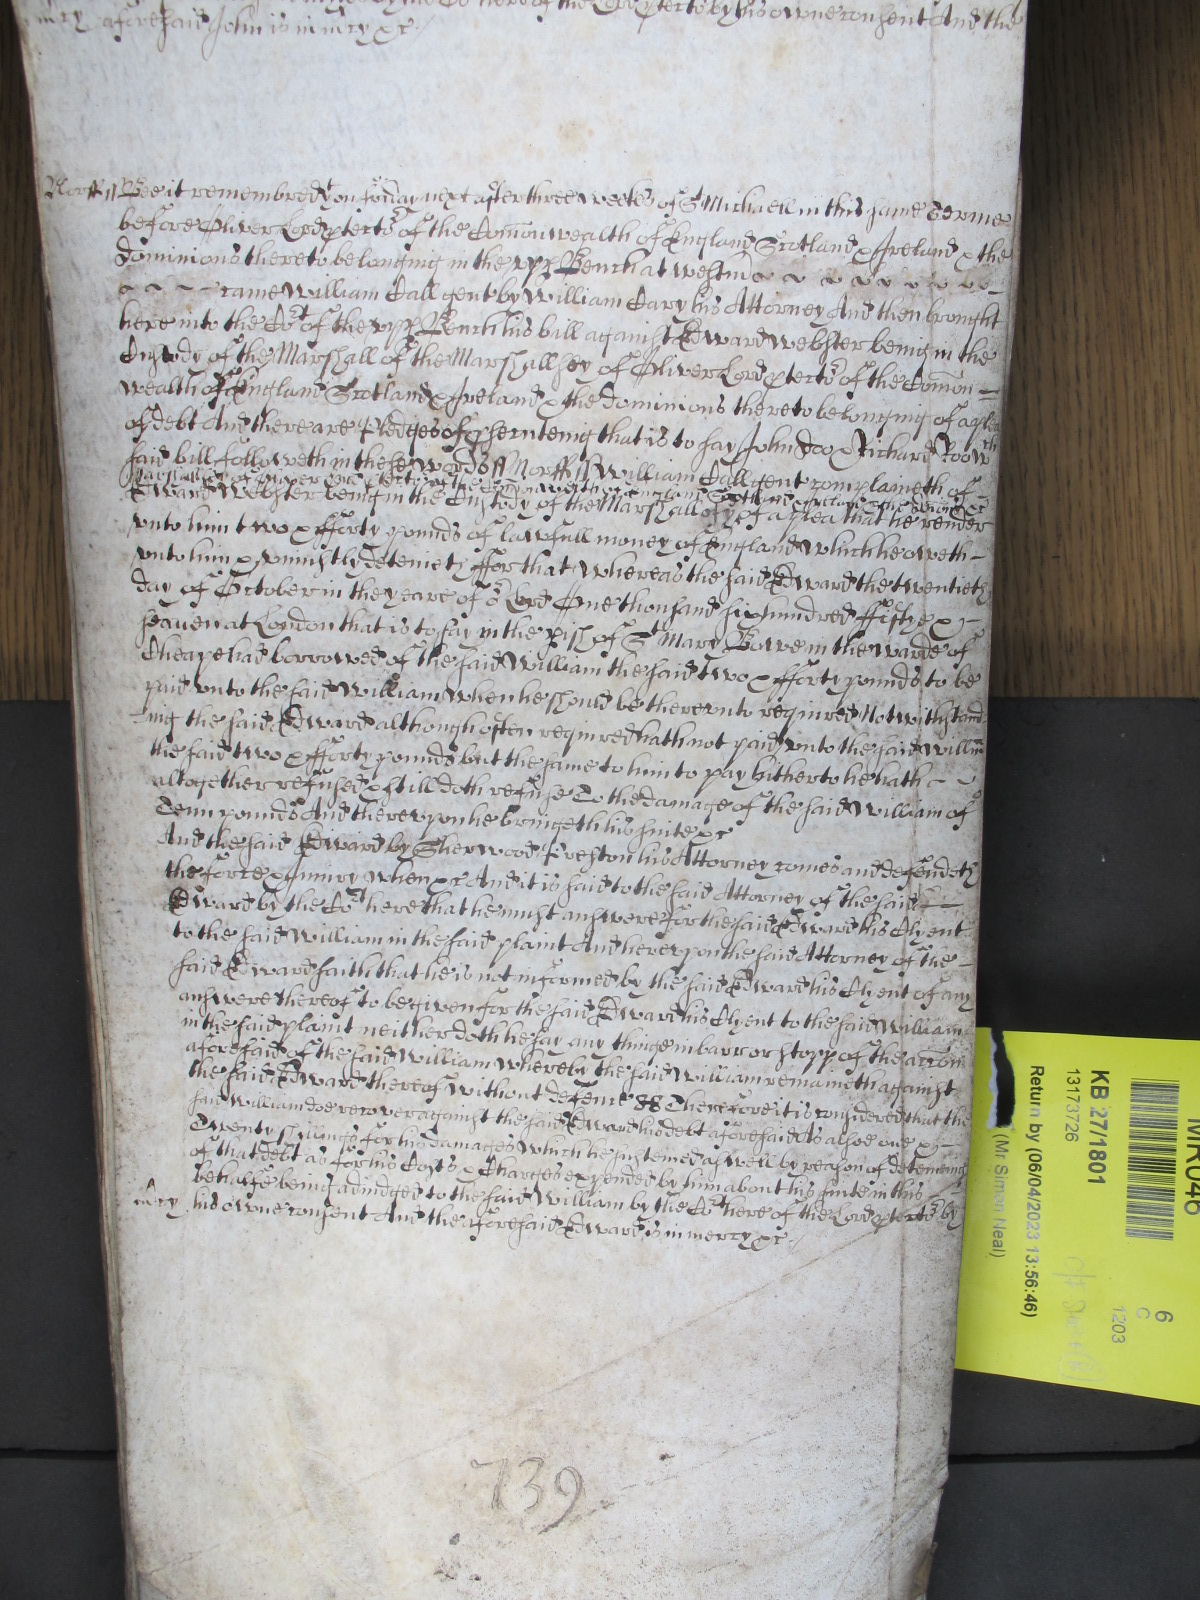 aforesaid John is in mcy &c
Norff ss Bee it remembred yt on fryday next after three weekes of St Michaell in this same Terme
before Oliver Lord ptector of the Comonwealth of England Scotland & Ireland & the
dominions thereto belonging in the upp Bench at westmr
came William Call gent by William Cary his Attorney And then brought
here into the Cort of the upp Bench his bill against Edward Webster being in the
Custody of the Marshall of the Marshallsey of Oliver Lord ptector of the Comon
wealth of England Scotland & Ireland & the dominions thereto belonging of a plea
of debt And there are Pledges of psecuteing that is to say John Doo & Richard Roo wch
said bill followeth in these words ss Norff ss William Call gent complaineth of
Marshallsey of Oliver Lord ptector of the Comonwealth of England Scotland & Ireland & the dominions &c
Edward Webster being in the Custody of the Marshall of ye of a plea that he render
unto him two & fforty pounds of lawfull money of England which he oweth
unto him & uniustly deteineth ffor that whereas the said Edward the twentieth
day of October in the yeare of or Lord One thousand six hundred ffiftye &
seaven at London that is to say in the pish of St Mary Bowe in the warde of
Cheape had borrowed of the said William the said two & fforty pounds to be
paid unto the said William when he should be thereunto required Notwithstand
ing the said Edward although often required hath not paid unto the said William
the said two & fforty pounds but the same to him to pay hitherto he hath
altogether refused & still doth refuse To the damage of the said William of
Tenn pounds And thereupon he bringeth his suite &c
And the said Edward by Sherwood Preston his Attorney comes and defendeth
the force & iniury when &c And it is said to the said Attorney of the said
Edward by the Cort here that he must answere for the said Edward his Clyent
to the said William in the said plaint And hereupon the said Attorney of the
said Edward saith that he is not informed by the said Edward his Clyent of any
answere thereof to be given for the said Edward his Clyent to the said William
in the said plaint neither doth he say any thinge in barr or stopp of the accon
aforesaid of the said William whereby the said William remaineth against
the said Edward thereof without defence Therefore it is considered that the
said William doe recover against the said Edward his debt aforesaid As alsoe one &
Twenty shillings for his damages which he susteined aswell by reason of deteineing
of that debt as for his Costs & Charges expended by him about his suite in this
behalfe being adiudged to the said William by the Cort here of the Lord ptector by
mcy his owne consent And the aforesaid Edward is in mercy &c
739
KB 27/1801
13173726
Return by (06/04/2023 13:56:46)
(Mr Simon Neal)
6
C
1203